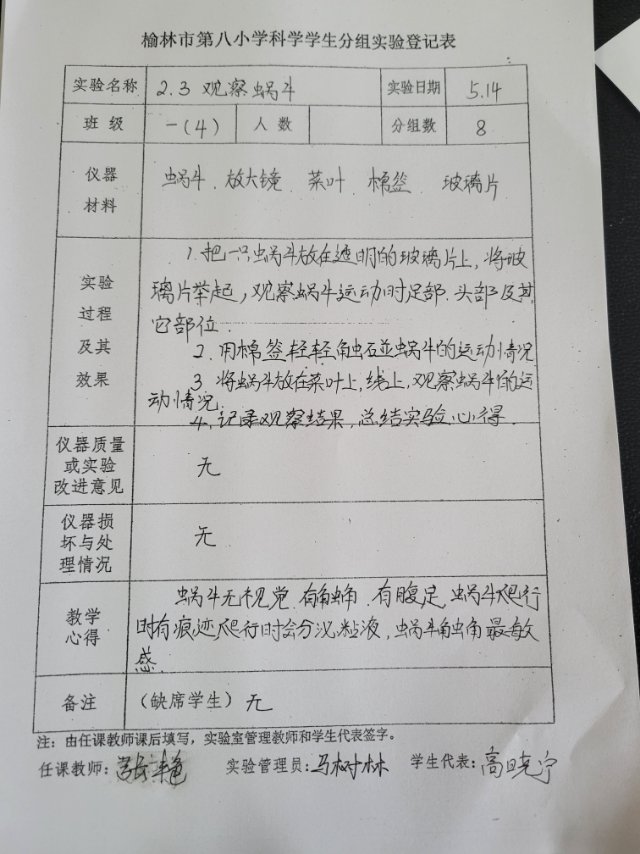 榆林市第八小学科学学生分组实验登记表
实验名称 2.3 观察蜗牛 实验日期 5.14
班级 一(4) 人数 分组数 8
仪器材料 蜗牛、放大镜、菜叶、棉签、玻璃片
实验过程及其效果
1.把一只蜗牛放在透明的玻璃片上,将玻
璃片举起,观察蜗牛运动时足部.头部及其
它部位.
2.用棉签轻轻触碰蜗牛的运动情况
3.将蜗牛放在菜叶上,线上,观察蜗牛的运
动情况
4.记录观察结果,总结实验心得.
仪器质量或实验改进意见 无
仪器损坏与处理情况 无
教学心得
蜗牛无视觉.有触角.有腹足,蜗牛爬行
时有痕迹,爬行时会分泌粘液,蜗牛触角最敏
感.
备注 (缺席学生) 无
注:由任课教师课后填写,实验室管理教师和学生代表签字。
任课教师: 实验管理员:马树林 学生代表:高晓宁